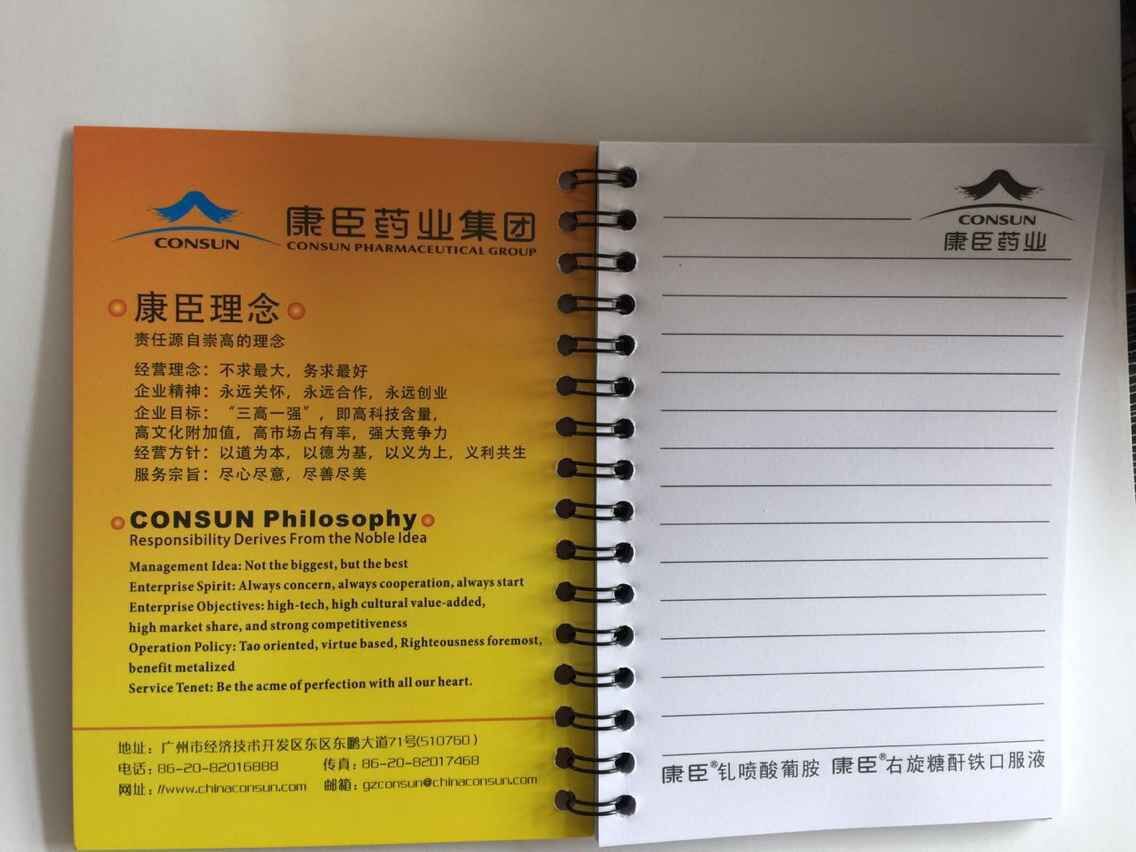 CONSUN
康臣药业集团
CONSUN PHARMACEUTICAL GROUP
康臣理念
责任源自崇高的理念
经营理念：不求最大，务求最好
企业精神：永远关怀，永远合作，永远创业
企业目标：“三高一强”，即高科技含量，
高文化附加值，高市场占有率，强大竞争力
经营方针：以道为本，以德为基，以义为上，义利共生
服务宗旨：尽心尽意，尽善尽美
CONSUN Philosophy
Responsibility Derives From the Noble Idea
Management Idea: Not the biggest, but the best
Enterprise Spirit: Always concern, always cooperation, always start
Enterprise Objectives: high-tech, high cultural value-added,
high market share, and strong competitiveness
Operation Policy: Tao oriented, virtue based, Righteousness foremost,
benefit metalized
Service Tenet: Be the acme of perfection with all our heart.
地址：广州市经济技术开发区东区东鹏大道71号(510760)
电话：86-20-82016888 传真：86-20-82017468
网址：//www.chinaconsun.com 邮箱：gzconsun@chinaconsun.com
CONSUN
康臣药业
康臣®钆喷酸葡胺 康臣®右旋糖酐铁口服液